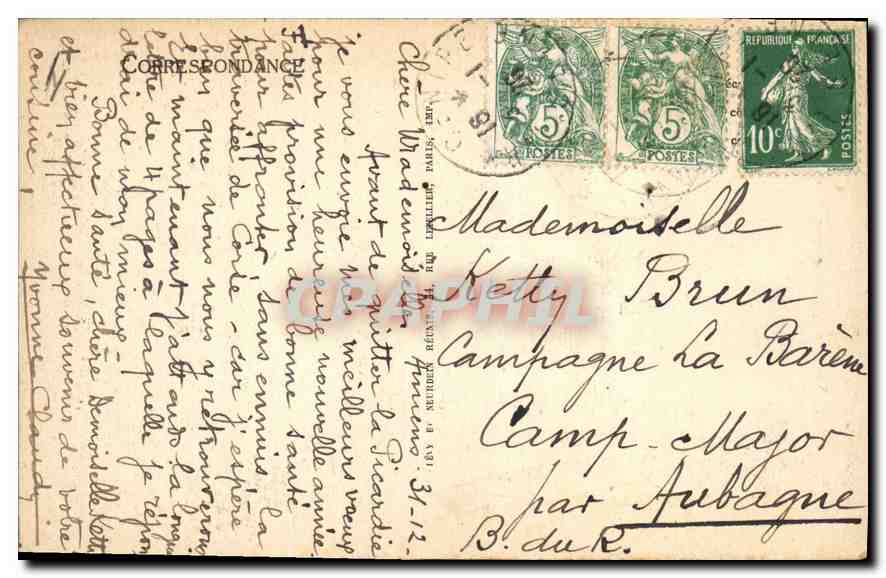 CORRESPONDANCE
Amiens 31-12-
Chère Mademoiselle,
Avant de quitter la Picardie
je vous envoie mes meilleurs vœux
pour une heureuse nouvelle année.
Faites provision de bonne santé
pour affronter sans ennuis la
traversée de Corse - car j'espère
bien que nous nous y retrouverons
Et maintenant j'attends la longue
lettre de 4 pages à laquelle je répon
drai de mon mieux -
Bonne santé, chère Demoiselle Ketty
et bien affectueux souvenir de votre
cousine,
Yvonne Claudy
LÉVY ET NEURDEIN RÉUNIS, 44, RUE LETELLIER, PARIS, IMP.
5c
POSTES
5c
POSTES
REPUBLIQUE FRANÇAISE
10c
POSTES
Mademoiselle
Ketty Brun
Campagne La Barène
Camp-Major
par Aubagne
B. du R.
CPAPHIL